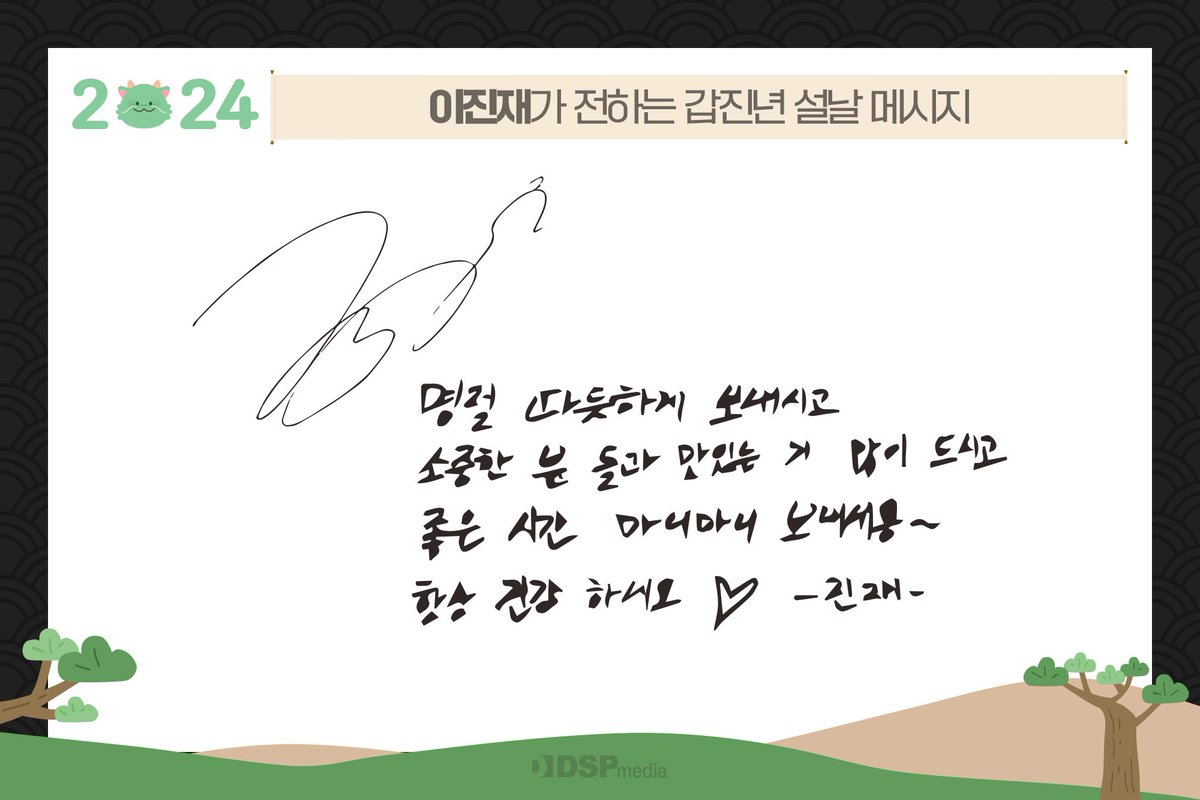 2024
이진재가 전하는 갑진년 설날 메시지
명절 따듯하게 보내시고
소중한 분 들과 맛있는 거 많이 드시고
좋은 시간 마니마니 보내세용~
항상 건강 하세요 ♡ -진재-
DSPmedia